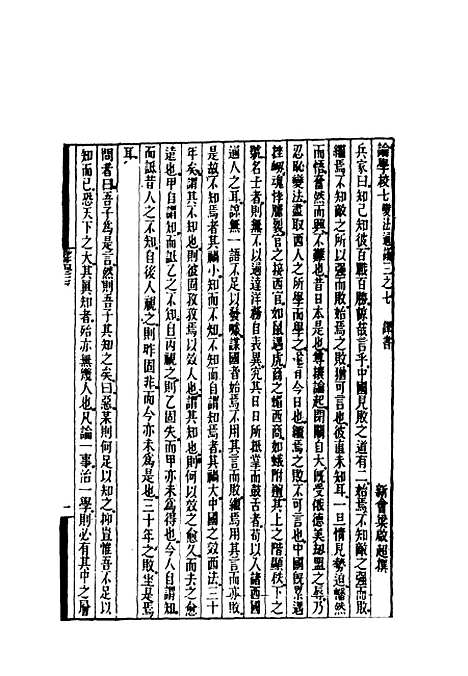 論學校七變法通議三之七 譯書
新會梁啟超撰
兵家曰知己知彼百戰百勝諒哉言乎中國見敗之道有二始焉不知敵之強而敗
繼焉不知敵之所以強而敗始焉之敗猶可言也彼直未知耳一旦情見勢迫幡然
而悟奮然而興不難也昔日本是也尊攘論起閉關自大既受俄德美劫盟之辱乃
忍恥變法盡取西人之所學而學之遂有今日也繼焉之敗不可言也中國既累遇
挫衂魂悸膽裂官之接西官如鼠遇虎商之媚西商如蛾附膻其上之階顯秩下之
號名士者則無不以通達洋務自表異究其日日所抵掌而鼓舌者苟以入諸西國
通人之耳諒無一語不足以發噱謀國者始焉不用其言而敗繼焉用其言而亦敗
是故不知焉者其禍小知而不知不知而自謂知焉者其禍大中國之效西法三十
年矣謂其不知也則彼固孜孜焉以效人也謂其知也則何以效之愈久而去之愈
遠也甲自謂知而詆乙之不知自丙視之則乙固失而甲亦未為得也今人自謂知
而詆昔人之不知自後人視之則昨固非而今亦未為是也三十年之敗坐是焉
耳
問者曰吾子為是言然則吾子其知之矣曰惡某則何足以知之抑豈惟吾不足以
知而已恐天下之大其眞知者殆亦無幾人也凡論一事治一學則必有其中之層
一